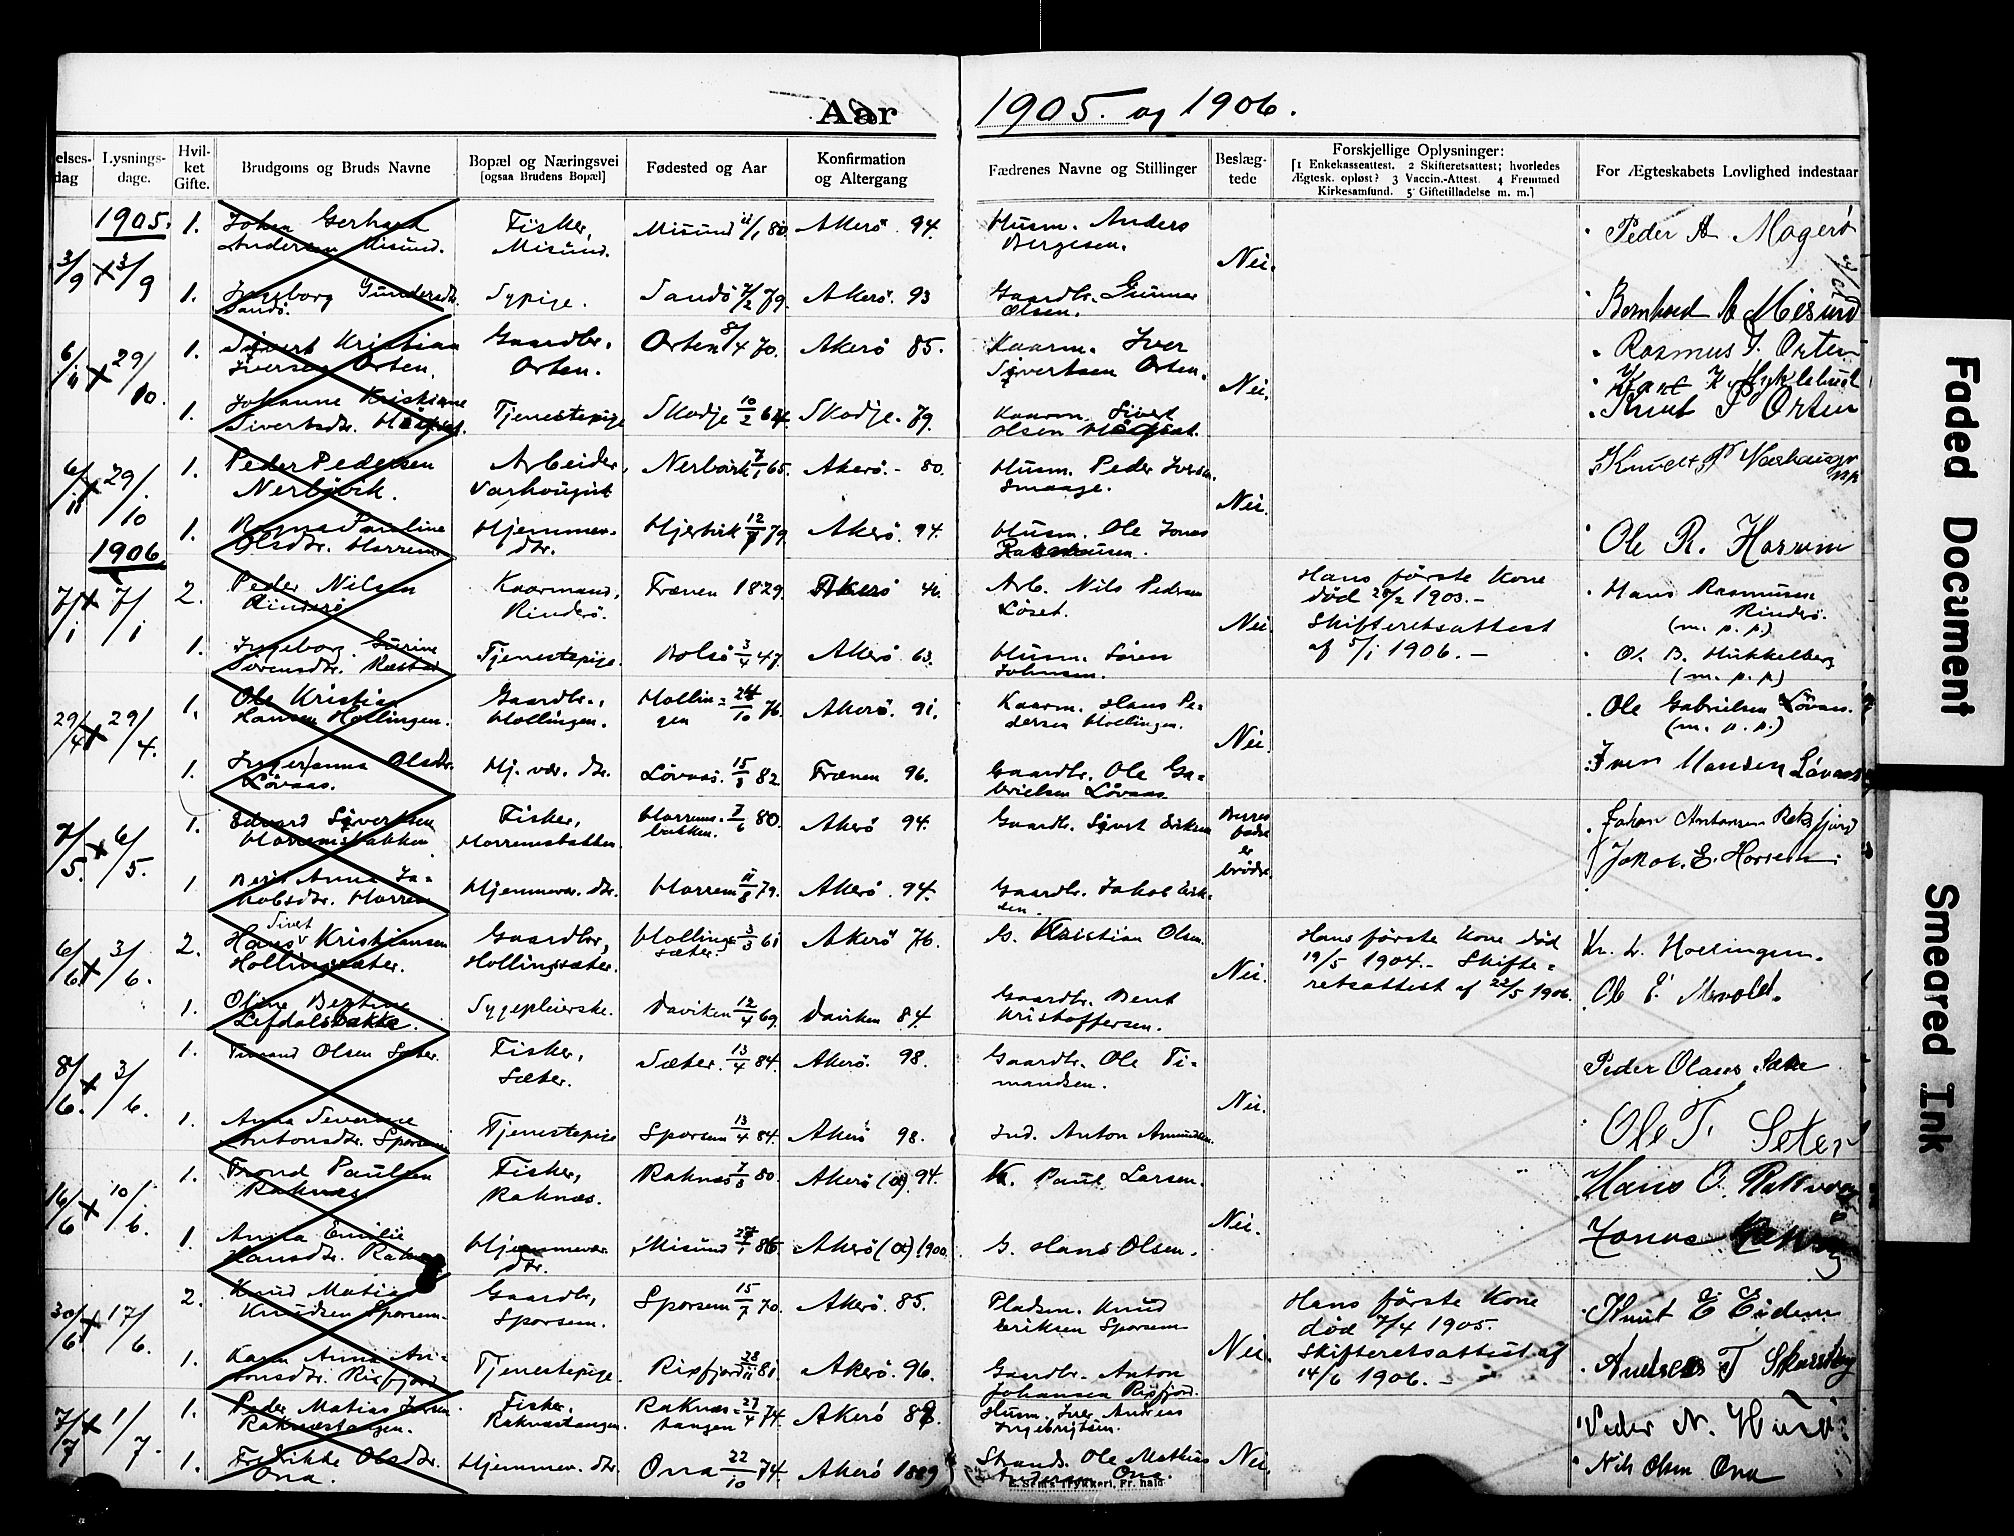 Aar 1905. og 1906.
elses-dag
Lysnings-dage.
Hvil-ket Gifte.
Brudgoms og Bruds Navne
Bopæl og Næringsvei
[ogsaa Brudens Bopæl]
Fødested og Aar
Konfirmation og Altergang
Fædrenes Navne og Stillinger
Beslæg-tede
Forskjellige Oplysninger:
[1 Enkekasseattest. 2 Skifteretsattest; hvorledes
Ægtesk. opløst? 3 Vaccin.-Attest. 4 Fremmed
Kirkesamfund. 5 Giftetilladelse m. m.]
For Ægteskabets Lovlighed indestaar
1905.
3/9 x 3/9 1. Johan Gerhard Andersen Misund. Fisker, Misund. Misund 80. Akerö. 94. Husm. Anders Bergesen. Nei. Peder A Magerö
1. Ingeborg Gundersdtr. Sandö. Sypige. Sandö 7/2 79. Akerö. 93 Gaardbr. Gunnar Olsen. Bernhard A Misund
6/11 x 29/10. 1. Sivert Kristian Iversen Orten. Gaardbr. Orten. Orten 8/4 70. Akerö 85. Kaarm. Iver Sivertsen Orten. Nei. Rasmus I. Orten
K. Myklebust
1. Johanne Kristianne Sivertsdtr. Tjenestepige Skodje 10/2 64. Skodje. 79. Kaarm. Sivert Olsen Knut P Orten
6/11 x 29/10 1. Peder Pedersen Nerbövik. Arbeider, Varhougvik Nerbövik 7/1 65. Akerö. - 80. Husm. Peder Iversen Smaage. Nei. Knudt P Varhaugv
1. Ragna Pauline Olsdtr. Harrem Hjemmev. dtr. Hjertvik 12/9 79. Akerö. 94. Husm. Ole Jonas Rasmussen. Ole R. Harrem
1906.
7/1 x 7/1 2. Peder Nilsen Rinderö Kaarmand, Rinderö. Frænen 1829. Akerö 46. Arb. Nils Pedersen Löset. Nei. Hans förste Kone död 28/2 1903. - Skifteretsattest af 5/1 1906. - Hans Rasmussen Rinderö. (m. p. p.)
1. Ingeborg Gurine Sörensdtr. Tjenestepige. Bolsö 3/4 47. Akerö 63. Husm. Sören Johnsen. O. B. Hukkelberg (m. p. p.)
29/4 x 29/4. 1. Ole Kristian Hansen Hollingen. Gaardbr., Hollingen. Hollingen 24/10 76. Akerö. 91. Kaarm. Hans Pedersen Hollingen. Nei. Ole Gabrielsen Lövaas. (m. p. p.)
1. Ingerianna Olsdtr. Lövaas. Hj. vær. dtr. Lövaas. 15/3 82. Frænen 96. Gaardbr. Ole Gabrielsen Lövaas Iver Hansen Lövaas
7/5. x 6/5. 1. Edvard Sivertsen Harremsbakken. Fisker, Harremsbakken. Harremsbakken. 7/6 80. Akerö 94. Gaardbr. Sivert Eriksen er brödre. Johan Antonsen Reksfjord
1. Berit Anna Jakobsdtr. Harrem Hjemmevær. dtr. Harrem 11/8 79. Akerö. 94. Gaardbr. Jakob Eriksen. Jakob. E. Harrem.
6/6 x 3/6. 2. Hans Sivert Kristiansen Hollingsæter. Gaardbr, Hollingsæter. Hollingsæter. 3/3 61 Akerö 76. G. Kristian Olsen. Nei. Hans förste Kone död 19/5 1904. - Skifteretsattest af 22/5 1906. Kr. L. Hollingen.
1. Oline Bertine Lefdalsbakke. Sygepleierske. Daviken 12/4 69. Daviken 84. Gaardbr. Bent Kristoffersen. Ole E.
8/6. x 3/6. 1. Timand Olsen Sæter. Fisker, Sæter. Sæter. 13/4 84. Akerö. 98. Gaardbr. Ole Timandsen. Nei. Peder Olaus Sæter
1. Anna Severine Antonsdtr. Sporsem Tjenestepige Sporsem 13/4 84. Akerö 98. Ind. Anton Amundsen. Ole T. Seter
16/6 x 10/6. 1. Trond Paulsen Raknæs. Fisker, Raknæs. Raknæs 7/8 80 Akerö (α). 94. K. Paul Larsen. Nei. Hans O.
1. Anna Emilie Hansdtr. Hjemmevær dtr. Misund 86. Akerö (α) 1900. G. Hans Olsen. Jonas
30/6 x 17/6. 2. Knud Matias Knudsen Sporsem. Gaardbr, Sporsem. Sporsem 15/7 70. Akerö. 85. Pladsm. Knud Eriksen Sporsem Nei. Hans förste Kone död 7/4 1905. Skifteretsattest af 14/6 1906. - Knut E Eidem
1. Karen Anna Antonsdtr. Rixfjord Tjenestepige. Rixfjord 28/11 81. Akerö. 96. Gaardbr. Anton Johansen Rixfjord. Andreas T
7/7 x 1/7. 1. Peder Matias Iversen Raknæstangen. Fisker, Raknæstangen. Raknæstangen 27/4 74. Akerö Husm. Iver Andreas Ingebrigtsen. Nei. Peder N. Husö
1. Fredrikke Olsdtr. Ona. Hjemmev. dtr. Ona 22/10 74. Akerö 1889 Strands. Ole Mathias Andersen Ona. Nils Olsen Ona
E. Sems Trykkeri, Fr.hald
Faded Document
Smeared Ink